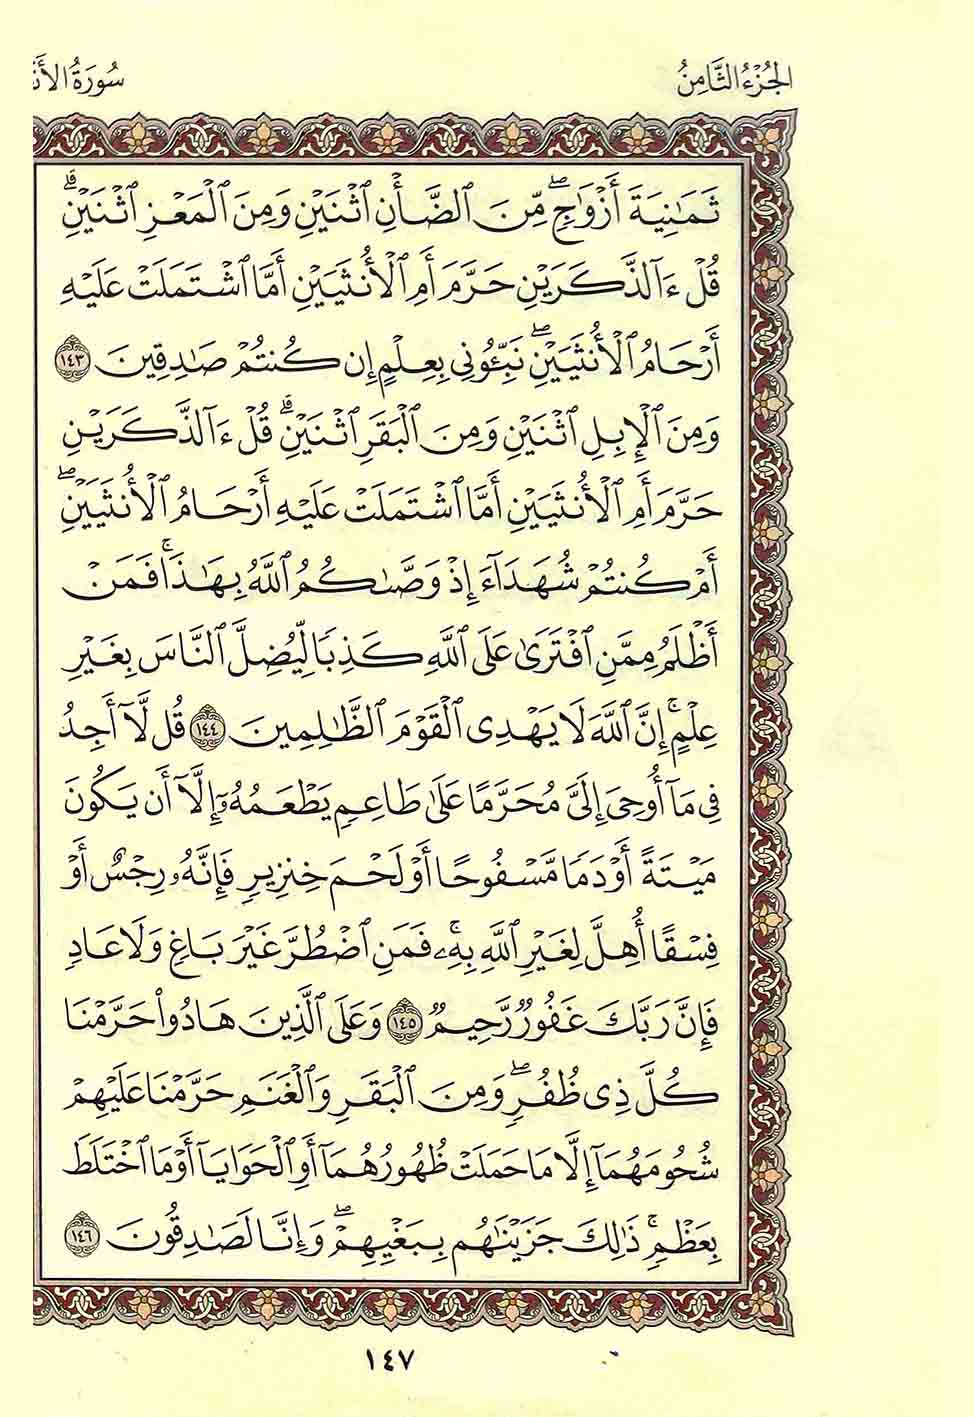 الجُزْءُ الثَّامِنُ
سُورَةُ الأَنْ
ثَمَٰنِيَةَ أَزْوَٰجٍۖ مِّنَ ٱلضَّأْنِ ٱثْنَيْنِ وَمِنَ ٱلْمَعْزِ ٱثْنَيْنِۗ
قُلْ ءَآلذَّكَرَيْنِ حَرَّمَ أَمِ ٱلْأُنثَيَيْنِ أَمَّا ٱشْتَمَلَتْ عَلَيْهِ
أَرْحَامُ ٱلْأُنثَيَيْنِۖ نَبِّـُٔونِي بِعِلْمٍ إِن كُنتُمْ صَٰدِقِينَ ١٤٣
وَمِنَ ٱلْإِبِلِ ٱثْنَيْنِ وَمِنَ ٱلْبَقَرِ ٱثْنَيْنِۗ قُلْ ءَآلذَّكَرَيْنِ
حَرَّمَ أَمِ ٱلْأُنثَيَيْنِ أَمَّا ٱشْتَمَلَتْ عَلَيْهِ أَرْحَامُ ٱلْأُنثَيَيْنِۖ
أَمْ كُنتُمْ شُهَدَآءَ إِذْ وَصَّىٰكُمُ ٱللَّهُ بِهَٰذَاۚ فَمَنْ
أَظْلَمُ مِمَّنِ ٱفْتَرَىٰ عَلَى ٱللَّهِ كَذِبًا لِّيُضِلَّ ٱلنَّاسَ بِغَيْرِ
عِلْمٍۚ إِنَّ ٱللَّهَ لَا يَهْدِى ٱلْقَوْمَ ٱلظَّٰلِمِينَ ١٤٤ قُل لَّآ أَجِدُ
فِى مَآ أُوحِىَ إِلَىَّ مُحَرَّمًا عَلَىٰ طَاعِمٍ يَطْعَمُهُۥٓ إِلَّآ أَن يَكُونَ
مَيْتَةً أَوْ دَمًا مَّسْفُوحًا أَوْ لَحْمَ خِنزِيرٍ فَإِنَّهُۥ رِجْسٌ أَوْ
فِسْقًا أُهِلَّ لِغَيْرِ ٱللَّهِ بِهِۦۚ فَمَنِ ٱضْطُرَّ غَيْرَ بَاغٍ وَلَا عَادٍ
فَإِنَّ رَبَّكَ غَفُورٌ رَّحِيمٌ ١٤٥ وَعَلَى ٱلَّذِينَ هَادُوا۟ حَرَّمْنَا
كُلَّ ذِى ظُفُرٍۖ وَمِنَ ٱلْبَقَرِ وَٱلْغَنَمِ حَرَّمْنَا عَلَيْهِمْ
شُحُومَهُمَآ إِلَّا مَا حَمَلَتْ ظُهُورُهُمَآ أَوِ ٱلْحَوَايَآ أَوْ مَا ٱخْتَلَطَ
بِعَظْمٍۚ ذَٰلِكَ جَزَيْنَٰهُم بِبَغْيِهِمْۖ وَإِنَّا لَصَٰدِقُونَ ١٤٦
١٤٧